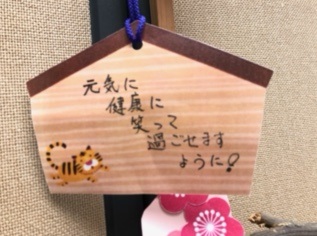 元気に
健康に
笑って
過ごせます
ように!